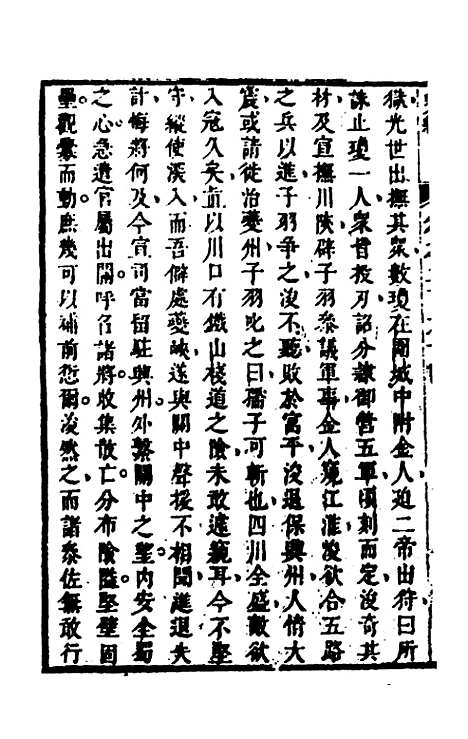 獄光世出撫其眾數瓊在圍城中附金人迫二帝出狩曰所
誅止瓊一人眾皆投刃詔分隸御營五軍頃刻而定浚奇其
材及宣撫川陝辟子羽參議軍事金人窺江淮浚欲合五路
之兵以進子羽爭之浚不聽敗於富平浚退保興州人情大
震或請徙治夔州子羽叱之曰孺子可斬也四川全盛敵欲
入寇久矣直以川口有鐵山棧道之險未敢遽窺耳今不堅
守縱使深入而吾僻處夔峽遂與關中聲援不相聞進退失
計悔將何及今宣司當留駐興州外繫關中之望內安全蜀
之心急遣官屬出關呼召諸將收集散亡分布險隘堅壁固
壘觀釁而動庶幾可以補前愆爾浚然之而諸參佐無敢行